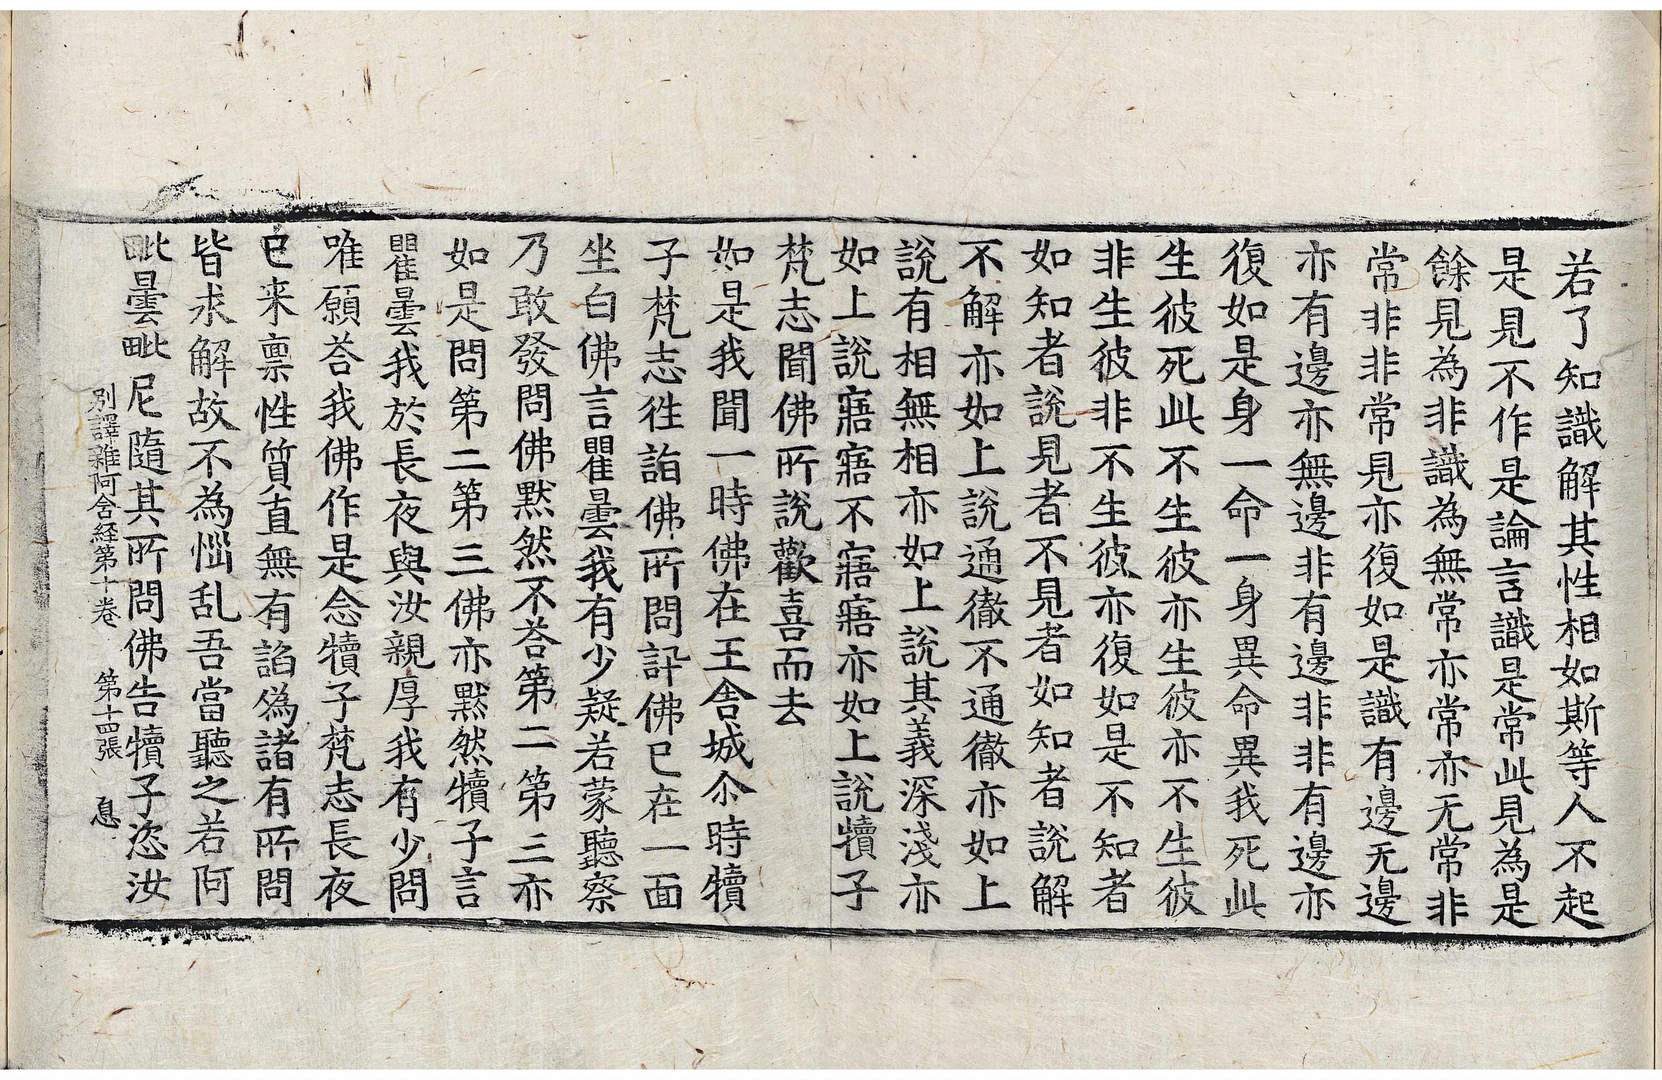 若了知識解其性相如斯等人不起
是見不作是論言識是常此見為是
餘見為非識為無常亦常亦无常非
常非非常見亦復如是識有邊无邊
亦有邊亦無邊非有邊非非有邊亦
復如是身一命一身異命異我死此
生彼死此不生彼亦生彼亦不生彼
非生彼非不生彼亦復如是不知者
如知者說見者不見者如知者說解
不解亦如上說通徹不通徹亦如上
說有相無相亦如上說其義深淺亦
如上說寤寤不寤寤亦如上說犢子
梵志聞佛所說歡喜而去
如是我聞一時佛在王舍城尒時犢
子梵志往詣佛所問訊佛已在一面
坐白佛言瞿曇我有少疑若蒙聽察
乃敢發問佛默然不荅第二第三亦
如是問第二第三佛亦默然犢子言
瞿曇我於長夜與汝親厚我有少問
唯願荅我佛作是念犢子梵志長夜
已来禀性質直無有諂偽諸有所問
皆求解故不為惱乱吾當聽之若阿
毗曇毗尼隨其所問佛告犢子恣汝
別譯雜阿含經第十卷 第十四張 息